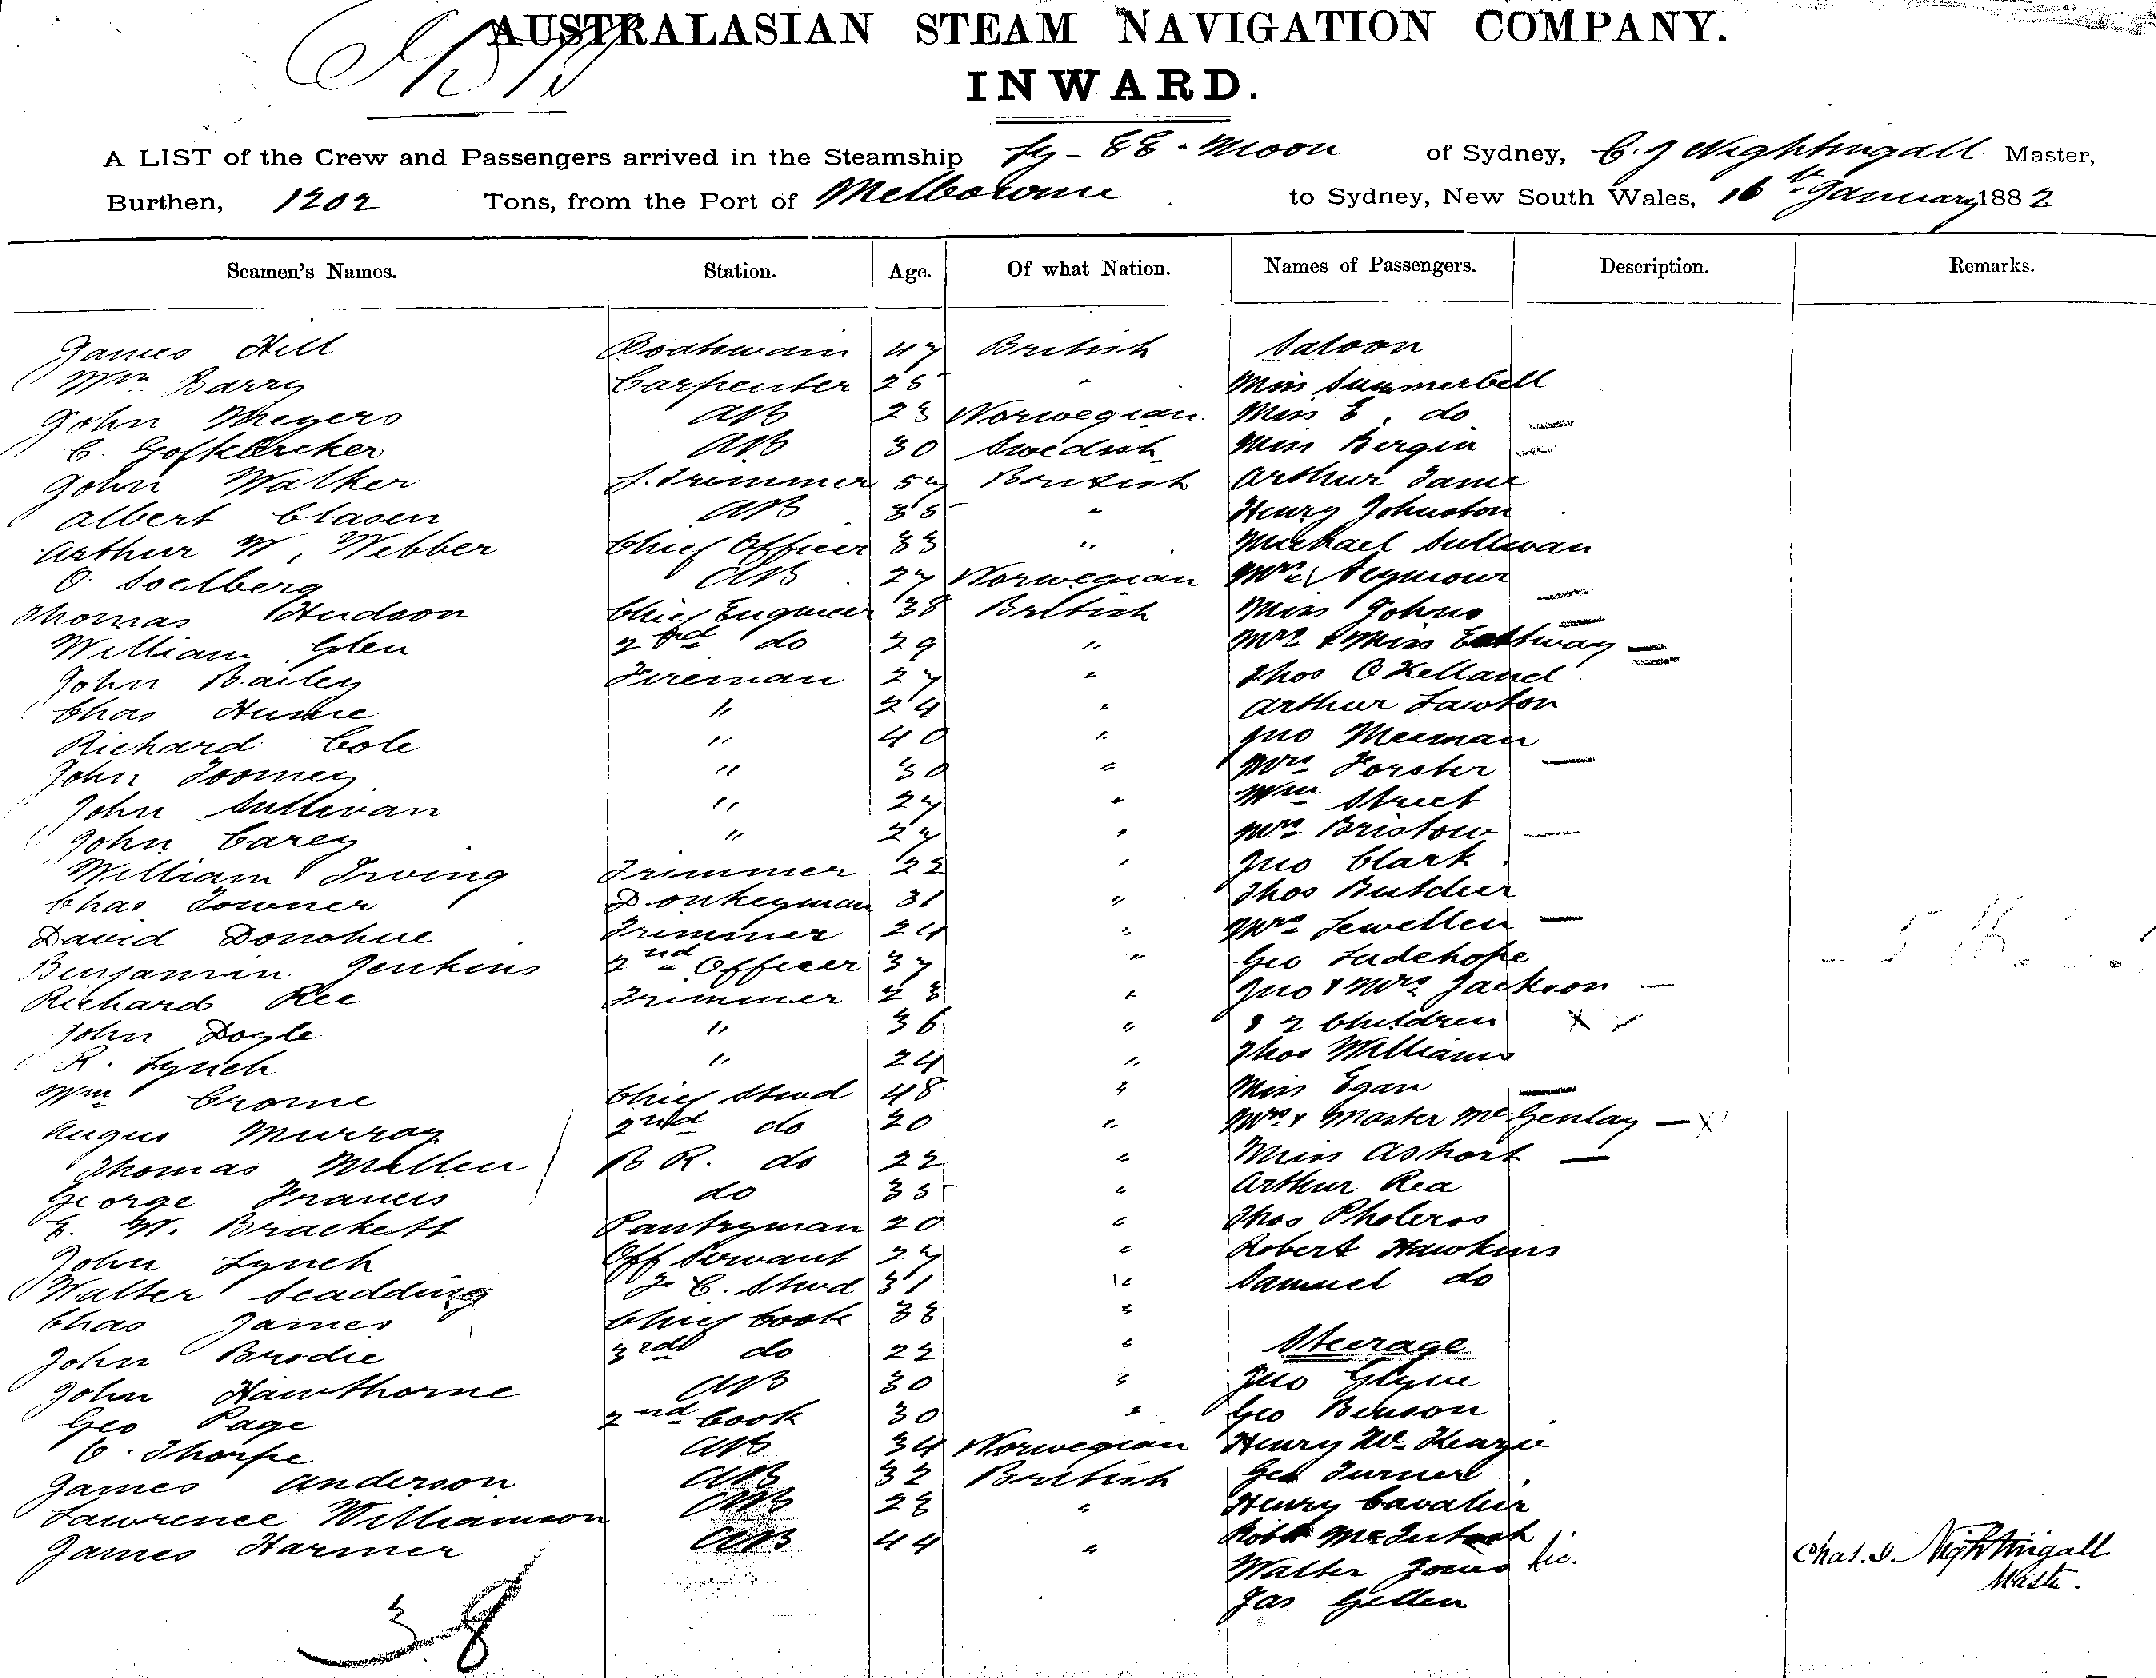 AUSTRALASIAN STEAM NAVIGATION COMPANY.
INWARD.
A LIST of the Crew and Passengers arrived in the Steamship Ly-EE-Moon of Sydney, C. J Nightingall Master,
Burthen, 1202 Tons, from the Port of Melbourne to Sydney, New South Wales, 16th January 1882
Seamen's Names. Station. Age. Of what Nation. Names of Passengers. Description. Remarks.
James Hill Boatswain 47 British Saloon
Wm Barry Carpenter 25 " Miss Summerbell
John Meyers AB 23 Norwegian Miss E. do
C. AB 30 Swedish Miss Bergin
John Walker Trimmer 57 British Arthur
Albert Clasen AB 35 " Henry Johnston
Arthur W. Webber Chief Officer 33 " Michael Sullivan
O. Soelberg AB 27 Norwegian Seymour
Thomas Hudson Chief Engineer 38 British Miss Johns
William Glen 2nd do 29 " Mrs & Miss Eastway
John Bailey Fireman 27 " Thos O Kelland
Chas Hume " 24 " Arthur Lawton
Richard Cole " 40 " Jno Meiman
John Toomey " 30 " Mrs Forster
John Sullivan " 27 " Wm Street
John Carey " 27 " Mrs Bristow
William Irving Trimmer 22 " Jno Clark
Chas Towner Donkeyman 31 " Thos Butcher
David Donohue Trimmer 24 " Mrs Lewellen
Benjamin Jenkins 2nd Officer 37 " Geo Ludehope
Richard Ree Trimmer 23 " Jno & Mrs Jackson
John Doyle " 36 " & 2 Children
R. Lynch " 24 " Thos Williams
Wm Crome Chief Stwd 48 " Miss Egan
Angus Murray 2nd do 20 " Mrs & Master McGenlay
Thomas Mullen B R. do 22 " Miss Ashort
George Francis do 35 " Arthur Rea
E. W. Brackett Pantryman 20 " Thos Pholeros
John Lynch Off Servant 27 " Robert Hawkins
Walter Scadding F. C. Stwd 31 " Samuel do
Chas James Chief Cook 38 "
John Brodie 3rd do 22 " Steerage
John Hawthorne AB 30 " Jno Glyne
Geo Page 2nd Cook 30 " Geo Benson
C. Thorpe AB 34 Norwegian Henry McKenzie
James Anderson AB 32 British Geo Turner
Lawrence Williamson AB 28 " Henry Cavalier
James Harmer AB 44 " Robt McIntosh
Walter Jones
Jas Gellen
Chas. J. Nightingall
Master.
38